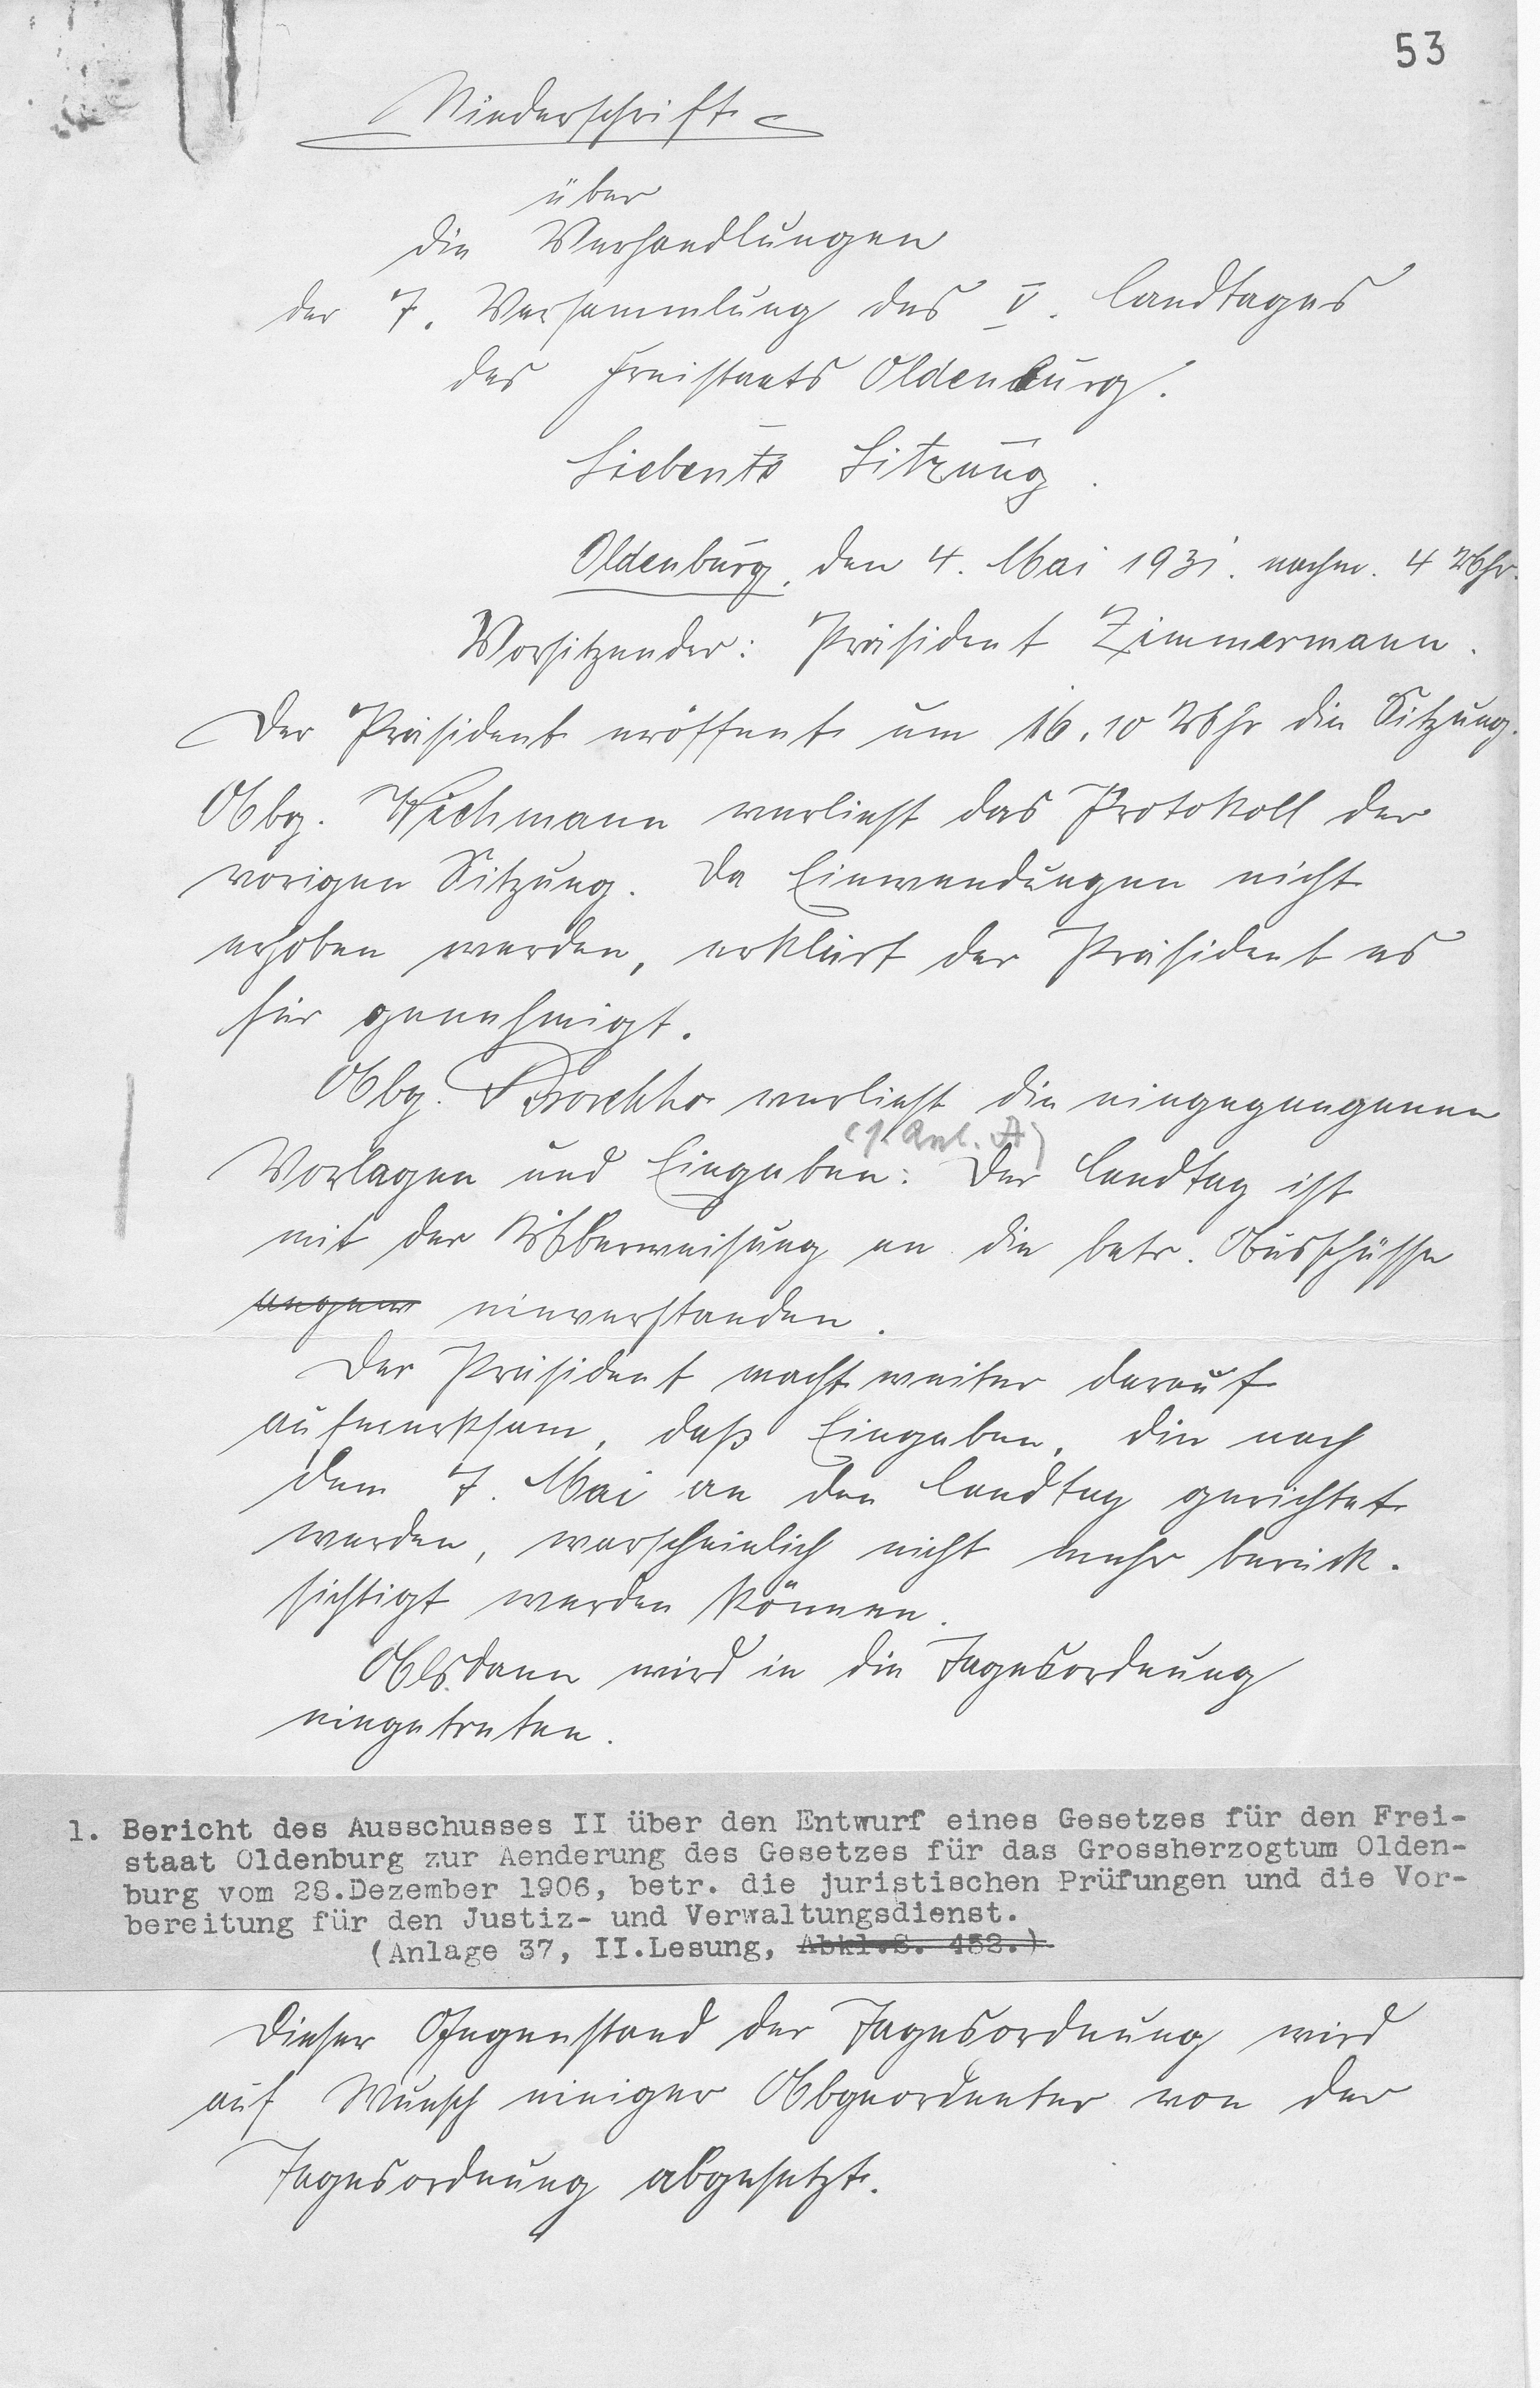 53
Niederschrift
über
die Verhandlungen
der 7. Versammlung des V. Landtages
des Freistaats Oldenburg.
Siebente Sitzung.
Oldenburg, den 4. Mai 1931. nachm. 4 Uhr.
Vorsitzender: Präsident Zimmermann.
Der Präsident eröffnet um 16.10 Uhr die Sitzung.
Abg. Wichmann verliest das Protokoll der
vorigen Sitzung. Da Einwendungen nicht
erhoben werden, erklärt der Präsident es
für genehmigt.
Abg. verliest die eingegangenen
(s. Anl. A)
Vorlagen und Eingaben: Der Landtag ist
mit der Überweisung an die betr. Ausschüsse
angen einverstanden.
Der Präsident macht weiter darauf
aufmerksam, daß Eingaben, die nach
dem 7. Mai an den Landtag gerichtet
werden, warscheinlich nicht mehr berück-
sichtigt werden können.
Alsdann wird in die Tagesordnung
eingetreten.
1. Bericht des Ausschusses II über den Entwurf eines Gesetzes für den Frei-
staat Oldenburg zur Aenderung des Gesetzes für das Grossherzogtum Olden-
burg vom 28.Dezember 1906, betr. die juristischen Prüfungen und die Vor-
bereitung für den Justiz- und Verwaltungsdienst.
(Anlage 37, II.Lesung, Abkl.S. 452.)
Dieser Gegenstand der Tagesordnung wird
auf Wunsch einiger Abgeordneter von der
Tagesordnung abgesetzt.